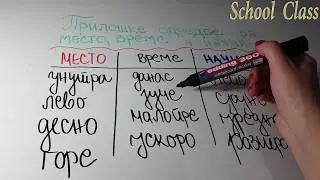 School Class
Прилошке одредбе за
место, време и начин
МЕСТО време НАЧИН
унутра данас
лево јуче
десно малопре
горе ускоро
edding 360